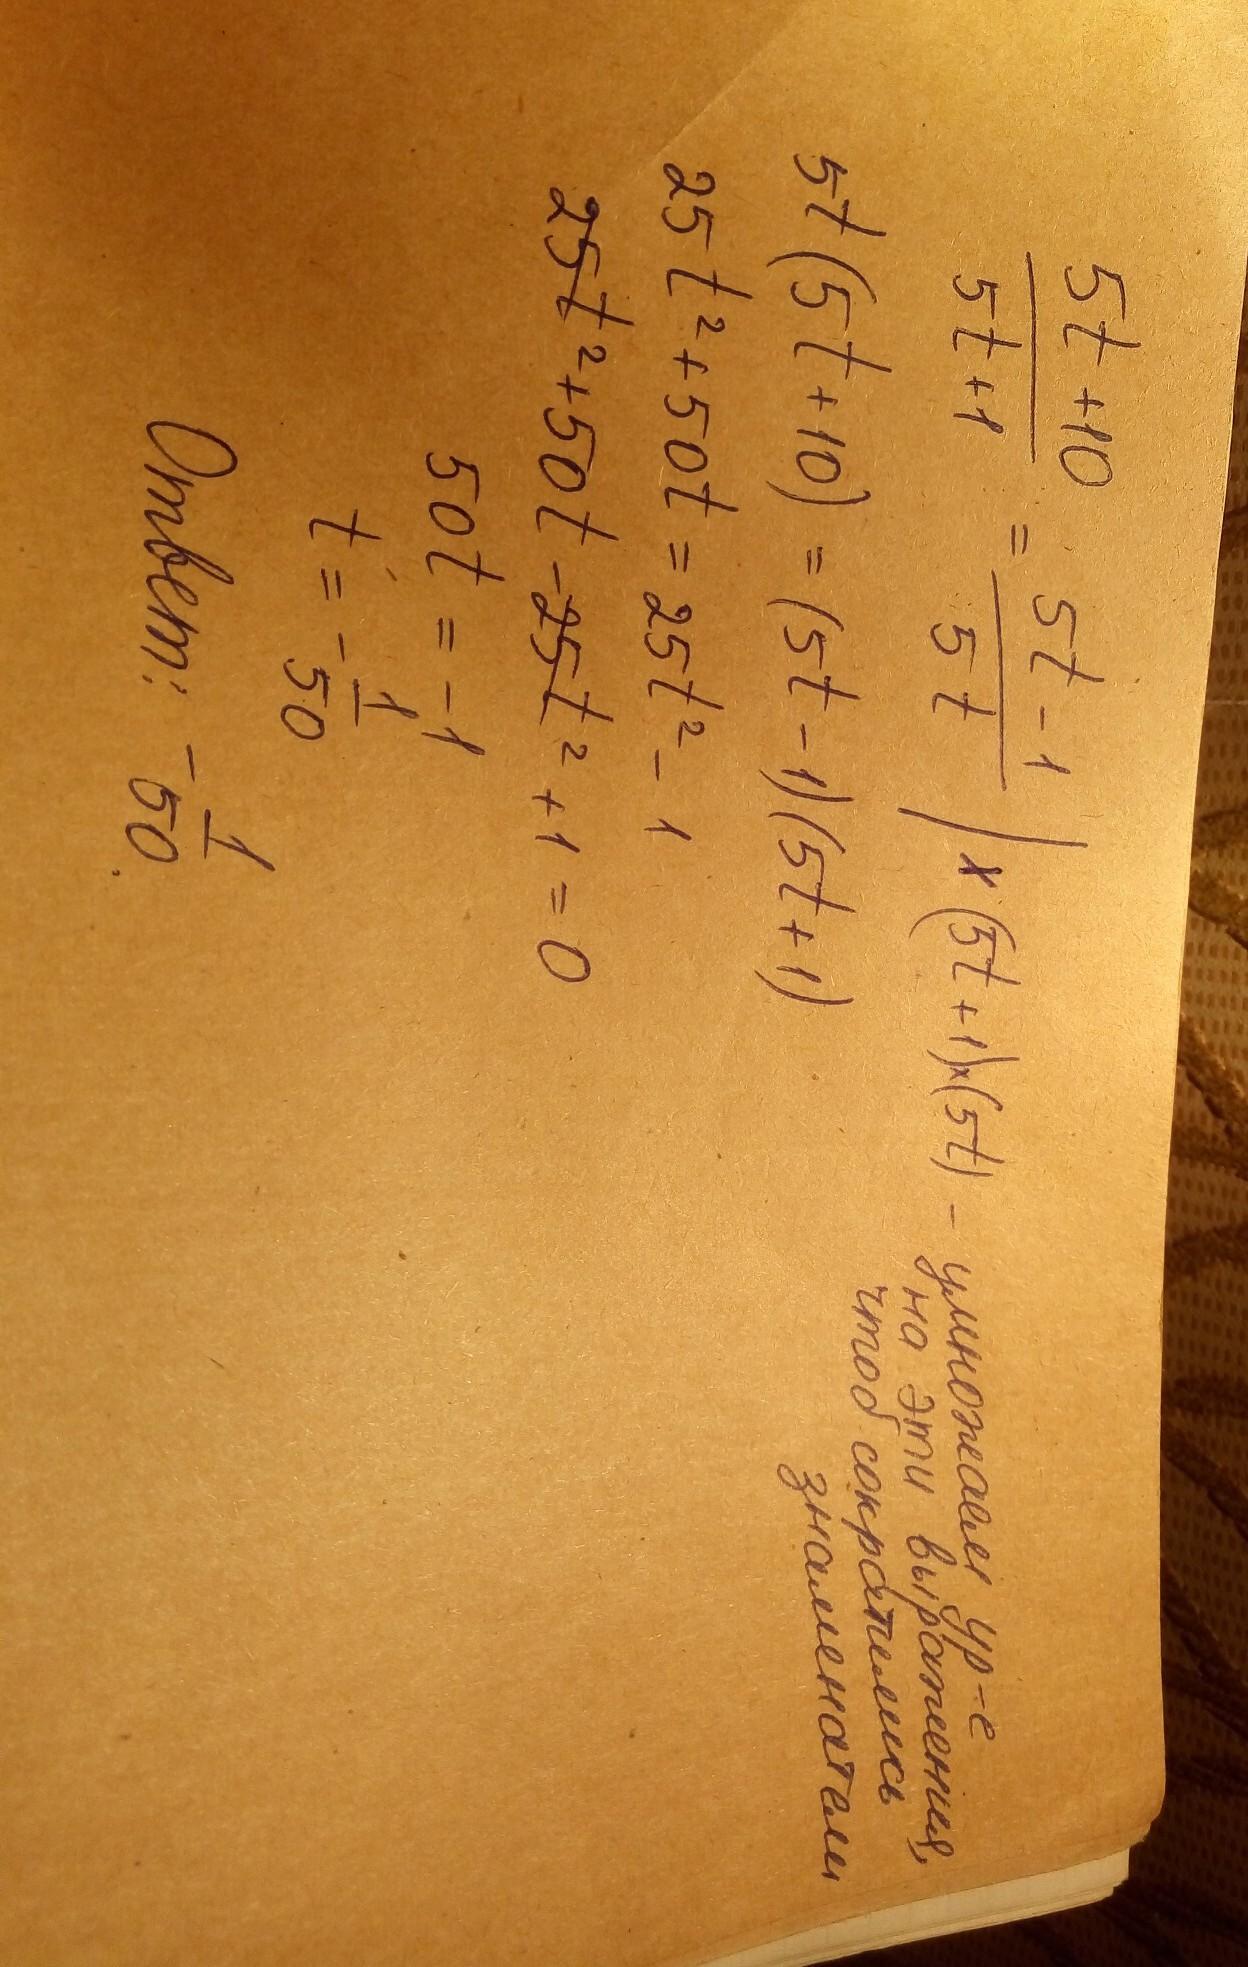 5t+10/5t+1 = 5t-1/5t | x (5t+1)x(5t) - умножаем ур-е
на эти выражения,
чтоб сократились
знаменатели
5t(5t+10) = (5t-1)(5t+1)
25t²+50t = 25t²-1
25t²+50t-25t²+1=0
50t = -1
t = -1/50
Ответ: -1/50.